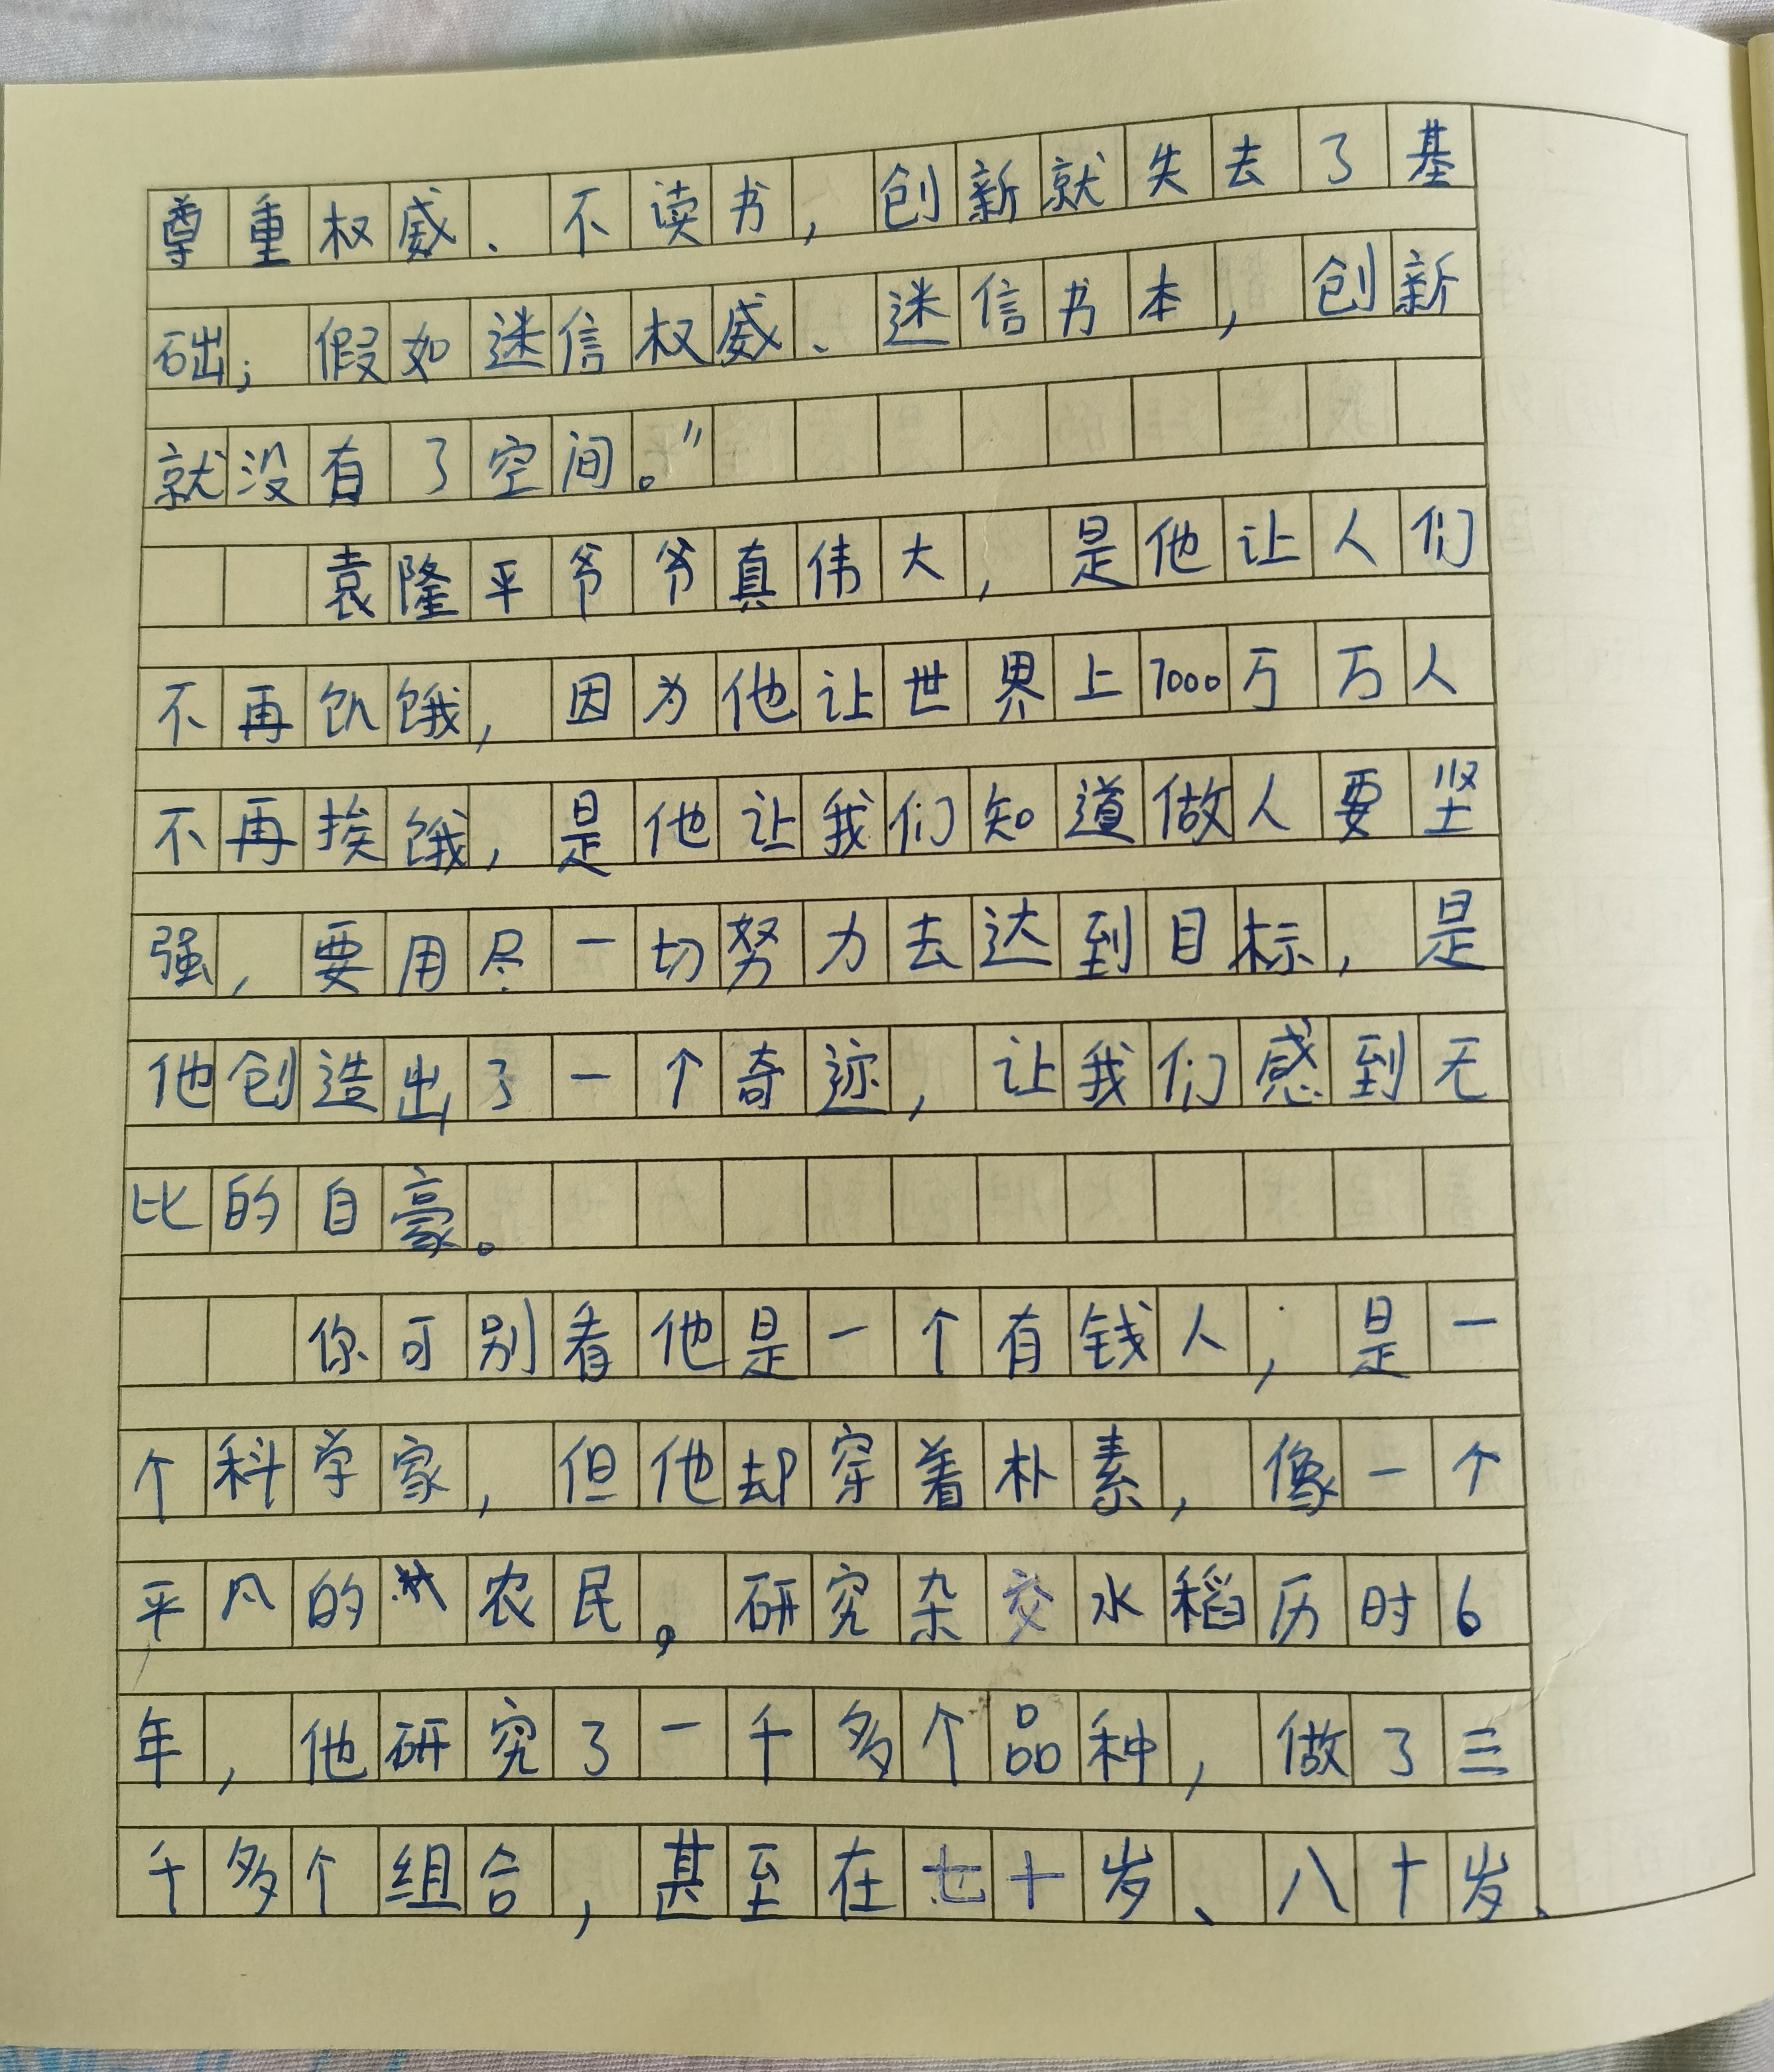 尊重权威、不读书，创新就失去了基
础；假如迷信权威、迷信书本，创新
就没有了空间。”
袁隆平爷爷真伟大，是他让人们
不再饥饿，因为他让世界上7000万万人
不再挨饿，是他让我们知道做人要坚
强，要用尽一切努力去达到目标，是
他创造出了一个奇迹，让我们感到无
比的自豪。
你可别看他是一个有钱人，是一
个科学家，但他却穿着朴素，像一个
平凡的农民。研究杂交水稻历时6
年，他研究了一千多个品种，做了三
千多个组合，甚至在七十岁、八十岁、